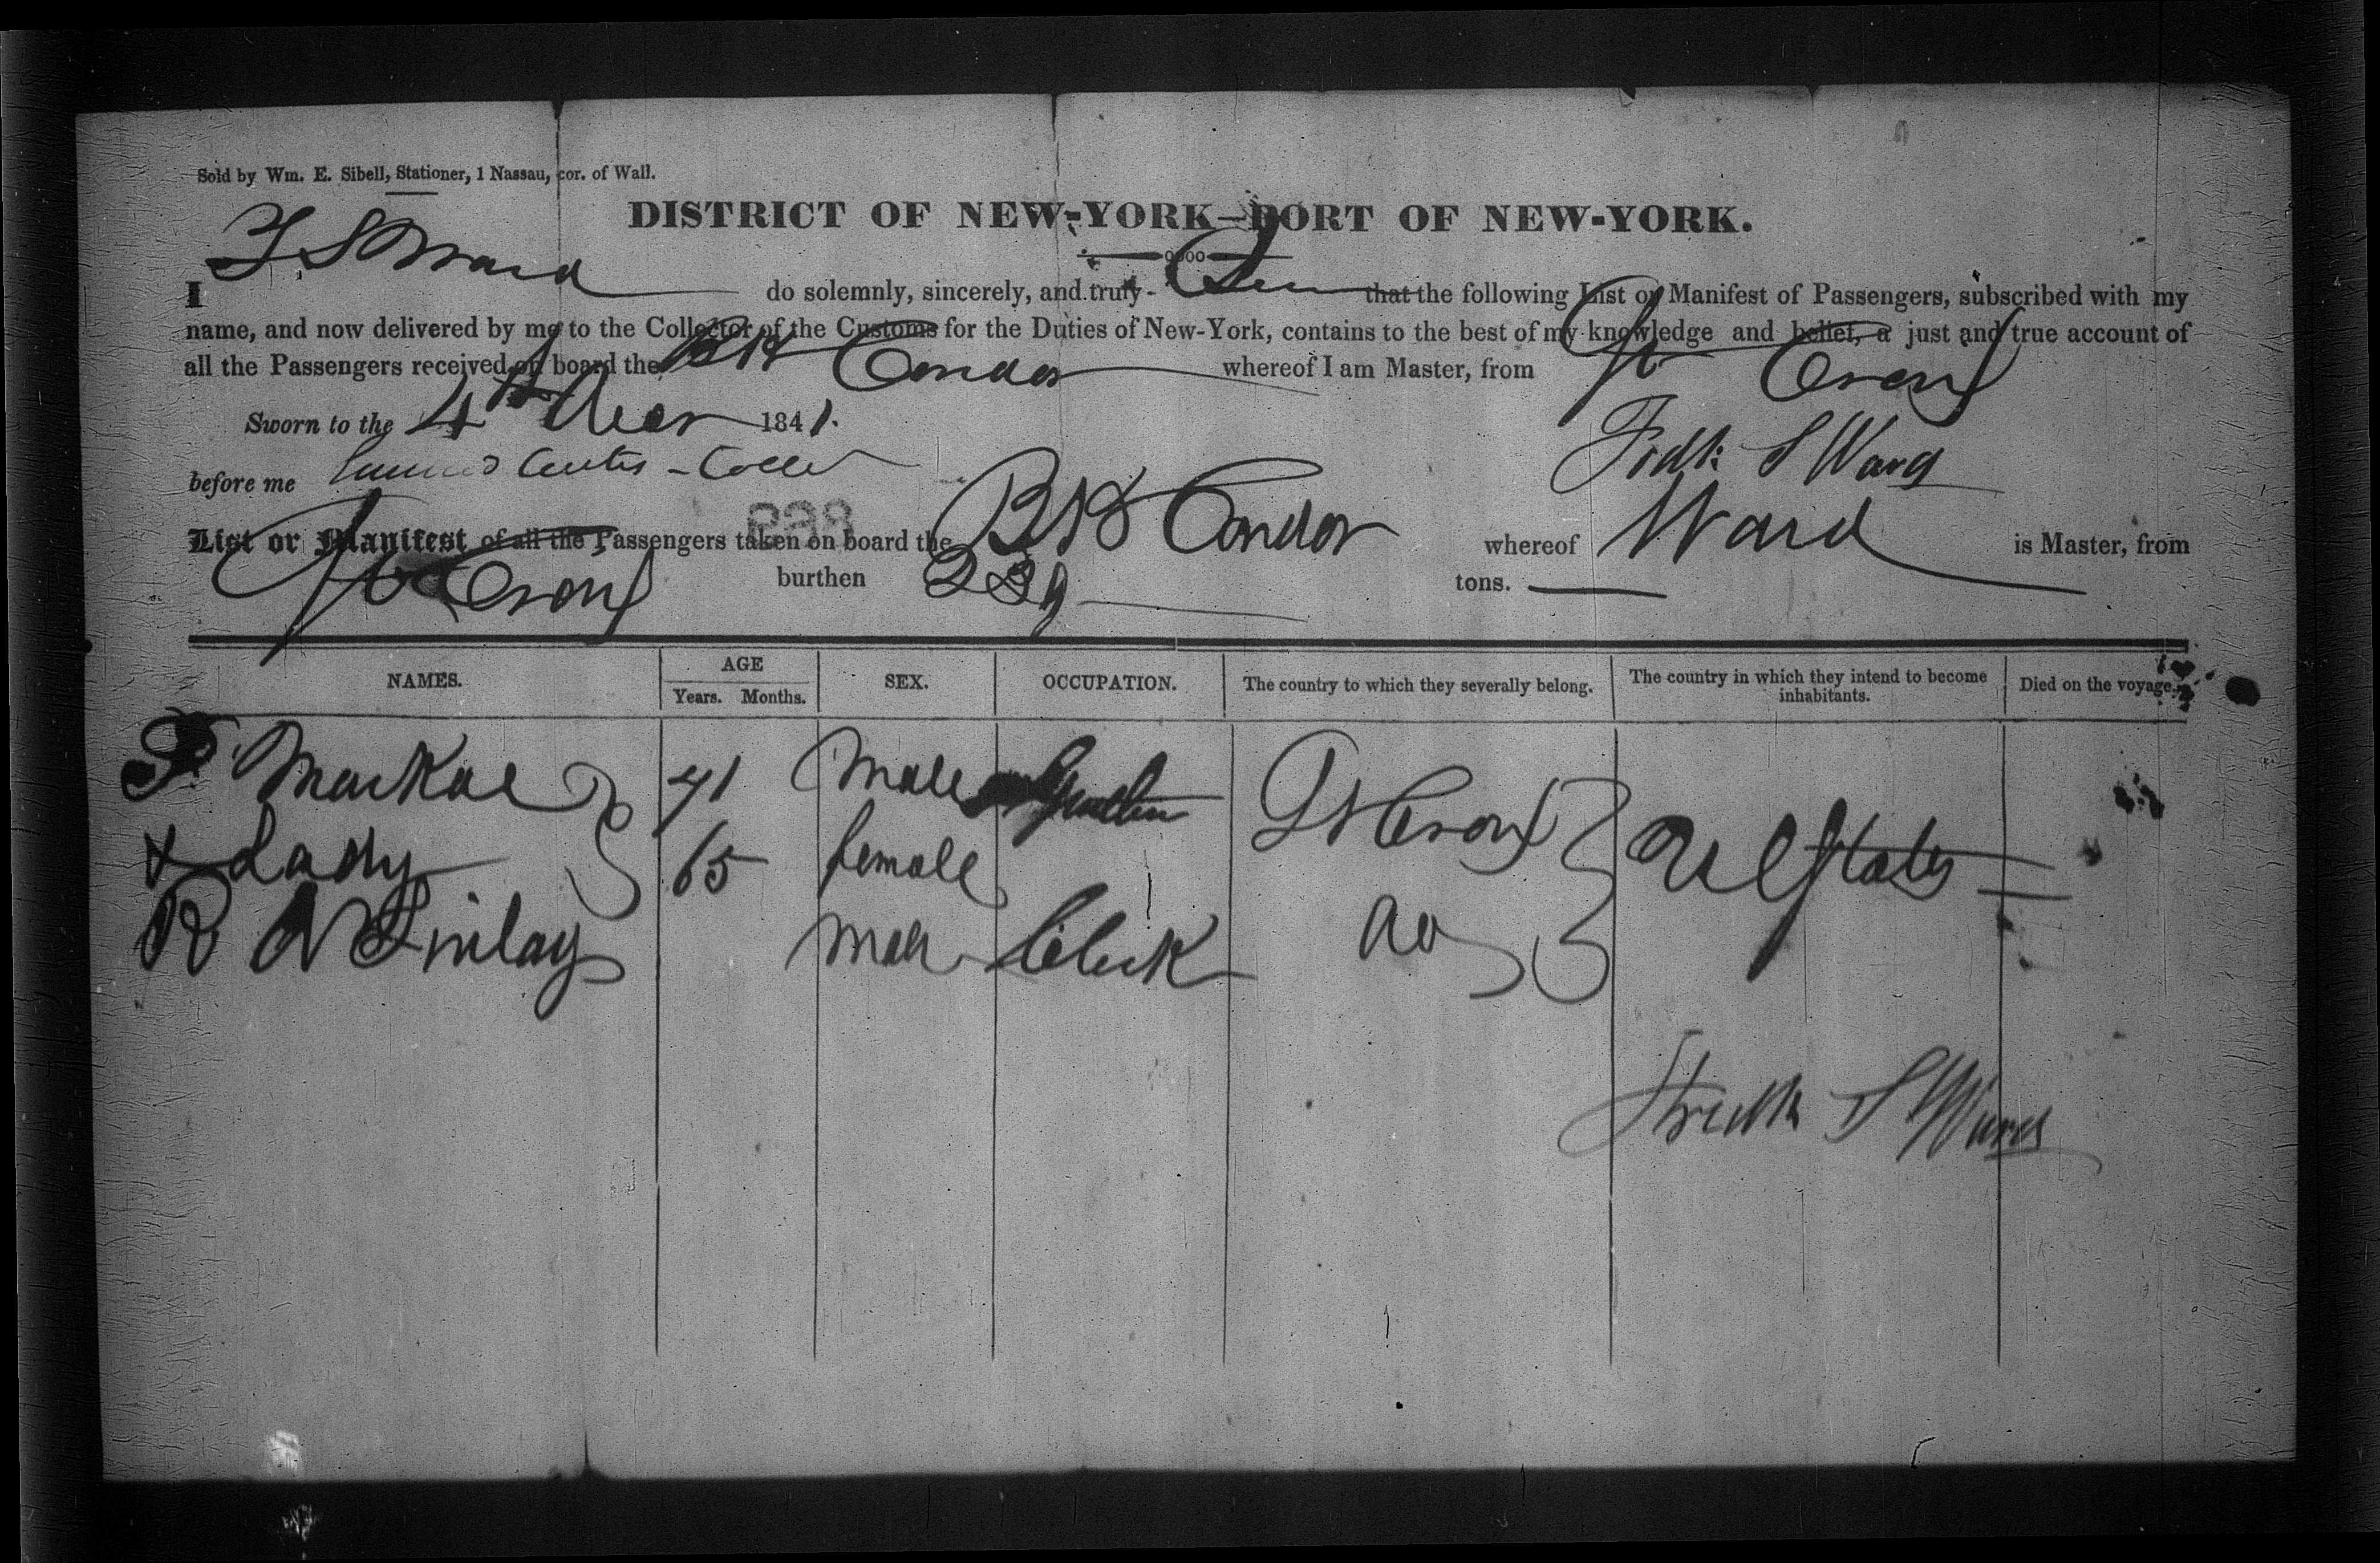 Sold by Wm. E. Sibell, Stationer, 1 Nassau, cor. of Wall.
DISTRICT OF NEW-YORK—PORT OF NEW-YORK.
I F S Ward do solemnly, sincerely, and truly that the following List or Manifest of Passengers, subscribed with my
name, and now delivered by me to the Collector of the Customs for the Duties of New-York, contains to the best of my knowledge and belief, a just and true account of
all the Passengers received on board the Condor whereof I am Master, from St Croix
Sworn to the 4th 1841.
before me Curtis
Fredk S Ward
List or Manifest of all the Passengers taken on board the Condor whereof Ward is Master, from
St Croix burthen 239 tons.
NAMES. AGE Years. Months. SEX. OCCUPATION. The country to which they severally belong. The country in which they intend to become inhabitants. Died on the voyage.
Markoe 41 male St Croix
& Lady 65 female U States
R Finlay male Clerk do
Fredk S Ward